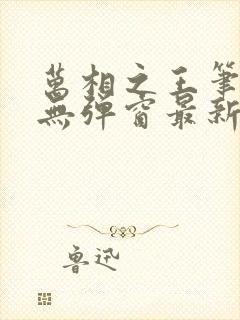 萬相之王筆
無彈窗最新
魯迅